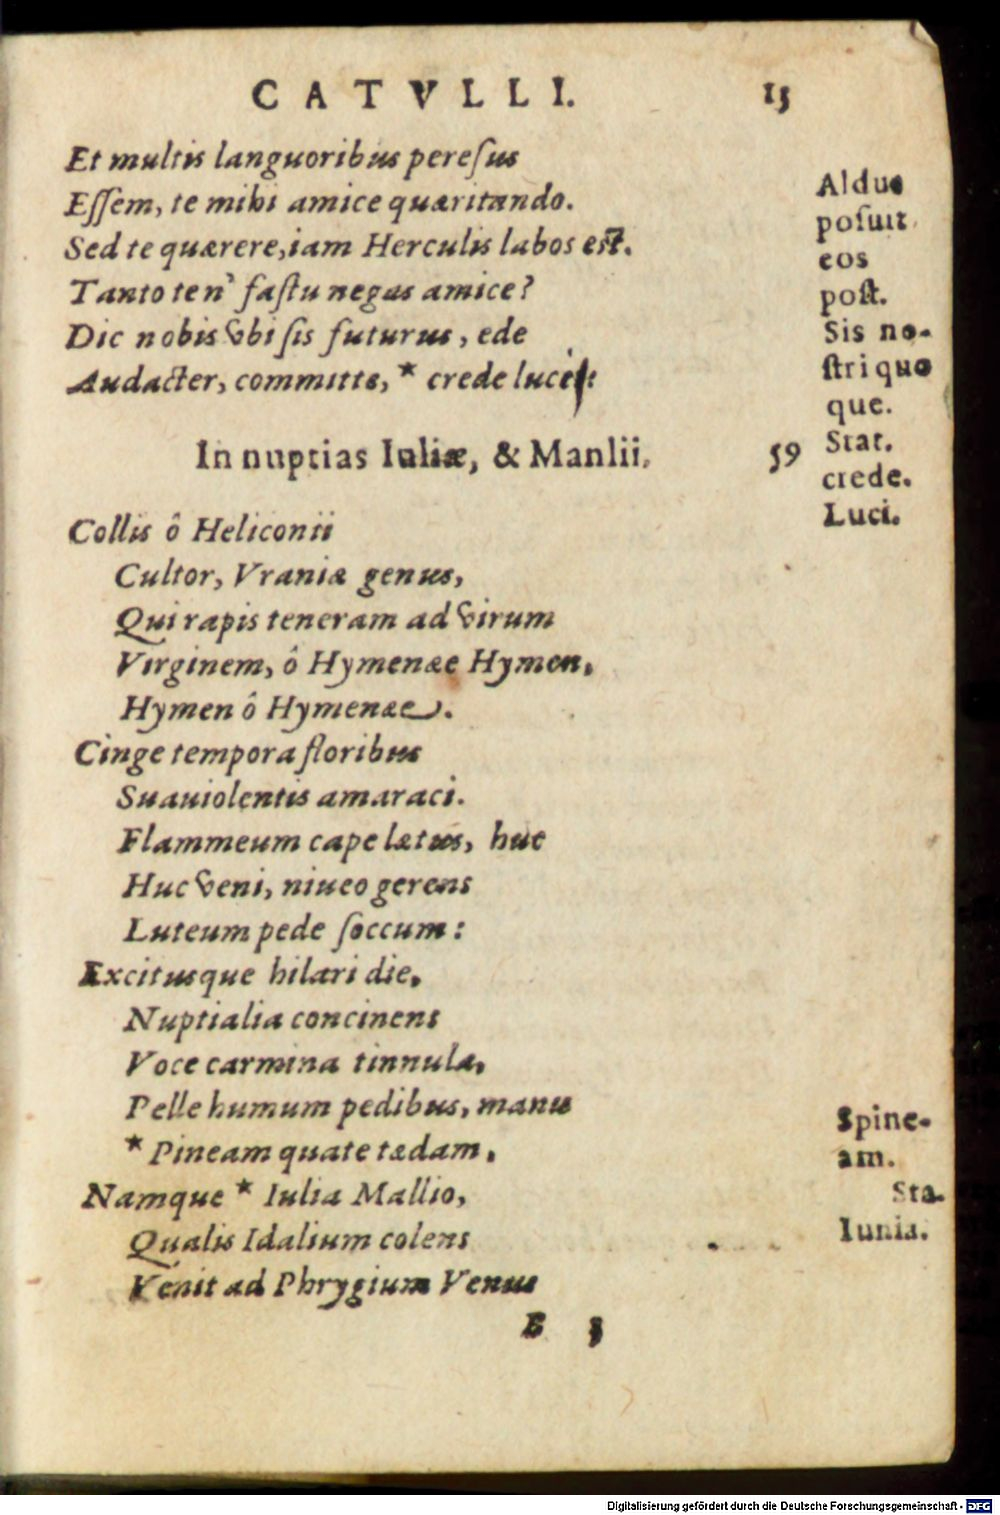 CATVLLI. 15
Et multis languoribus peresus
Essem, te mihi amice quæritando.
Sed te quærere, iam Herculis labos est.
Tanto ten' fastu negas amice?
Dic nobis vbi sis futurus, ede
Audacter, committe, * crede luceis:
Aldus
posuit
eos
post.
Sis no-
stri quo
que.
Stat.
crede.
Luci.
In nuptias Iuliæ, & Manlii. 59
Collis ô Heliconii
Cultor, Vraniæ genus,
Qui rapis teneram ad virum
Virginem, ô Hymenæe Hymen,
Hymen ô Hymenæe.
Cinge tempora floribus
Suauiolentis amaraci.
Flammeum cape lætus, huc
Huc veni, niueo gerens
Luteum pede soccum:
Excitusque hilari die,
Nuptialia concinens
Voce carmina tinnula,
Pelle humum pedibus, manu
* Pineam quate tædam,
Namque * Iulia Mallio,
Qualis Idalium colens
Venit ad Phrygium Venus
Spine-
am.
Sta.
Iunia.
B 3
Digitalisierung gefördert durch die Deutsche Forschungsgemeinschaft - DFG